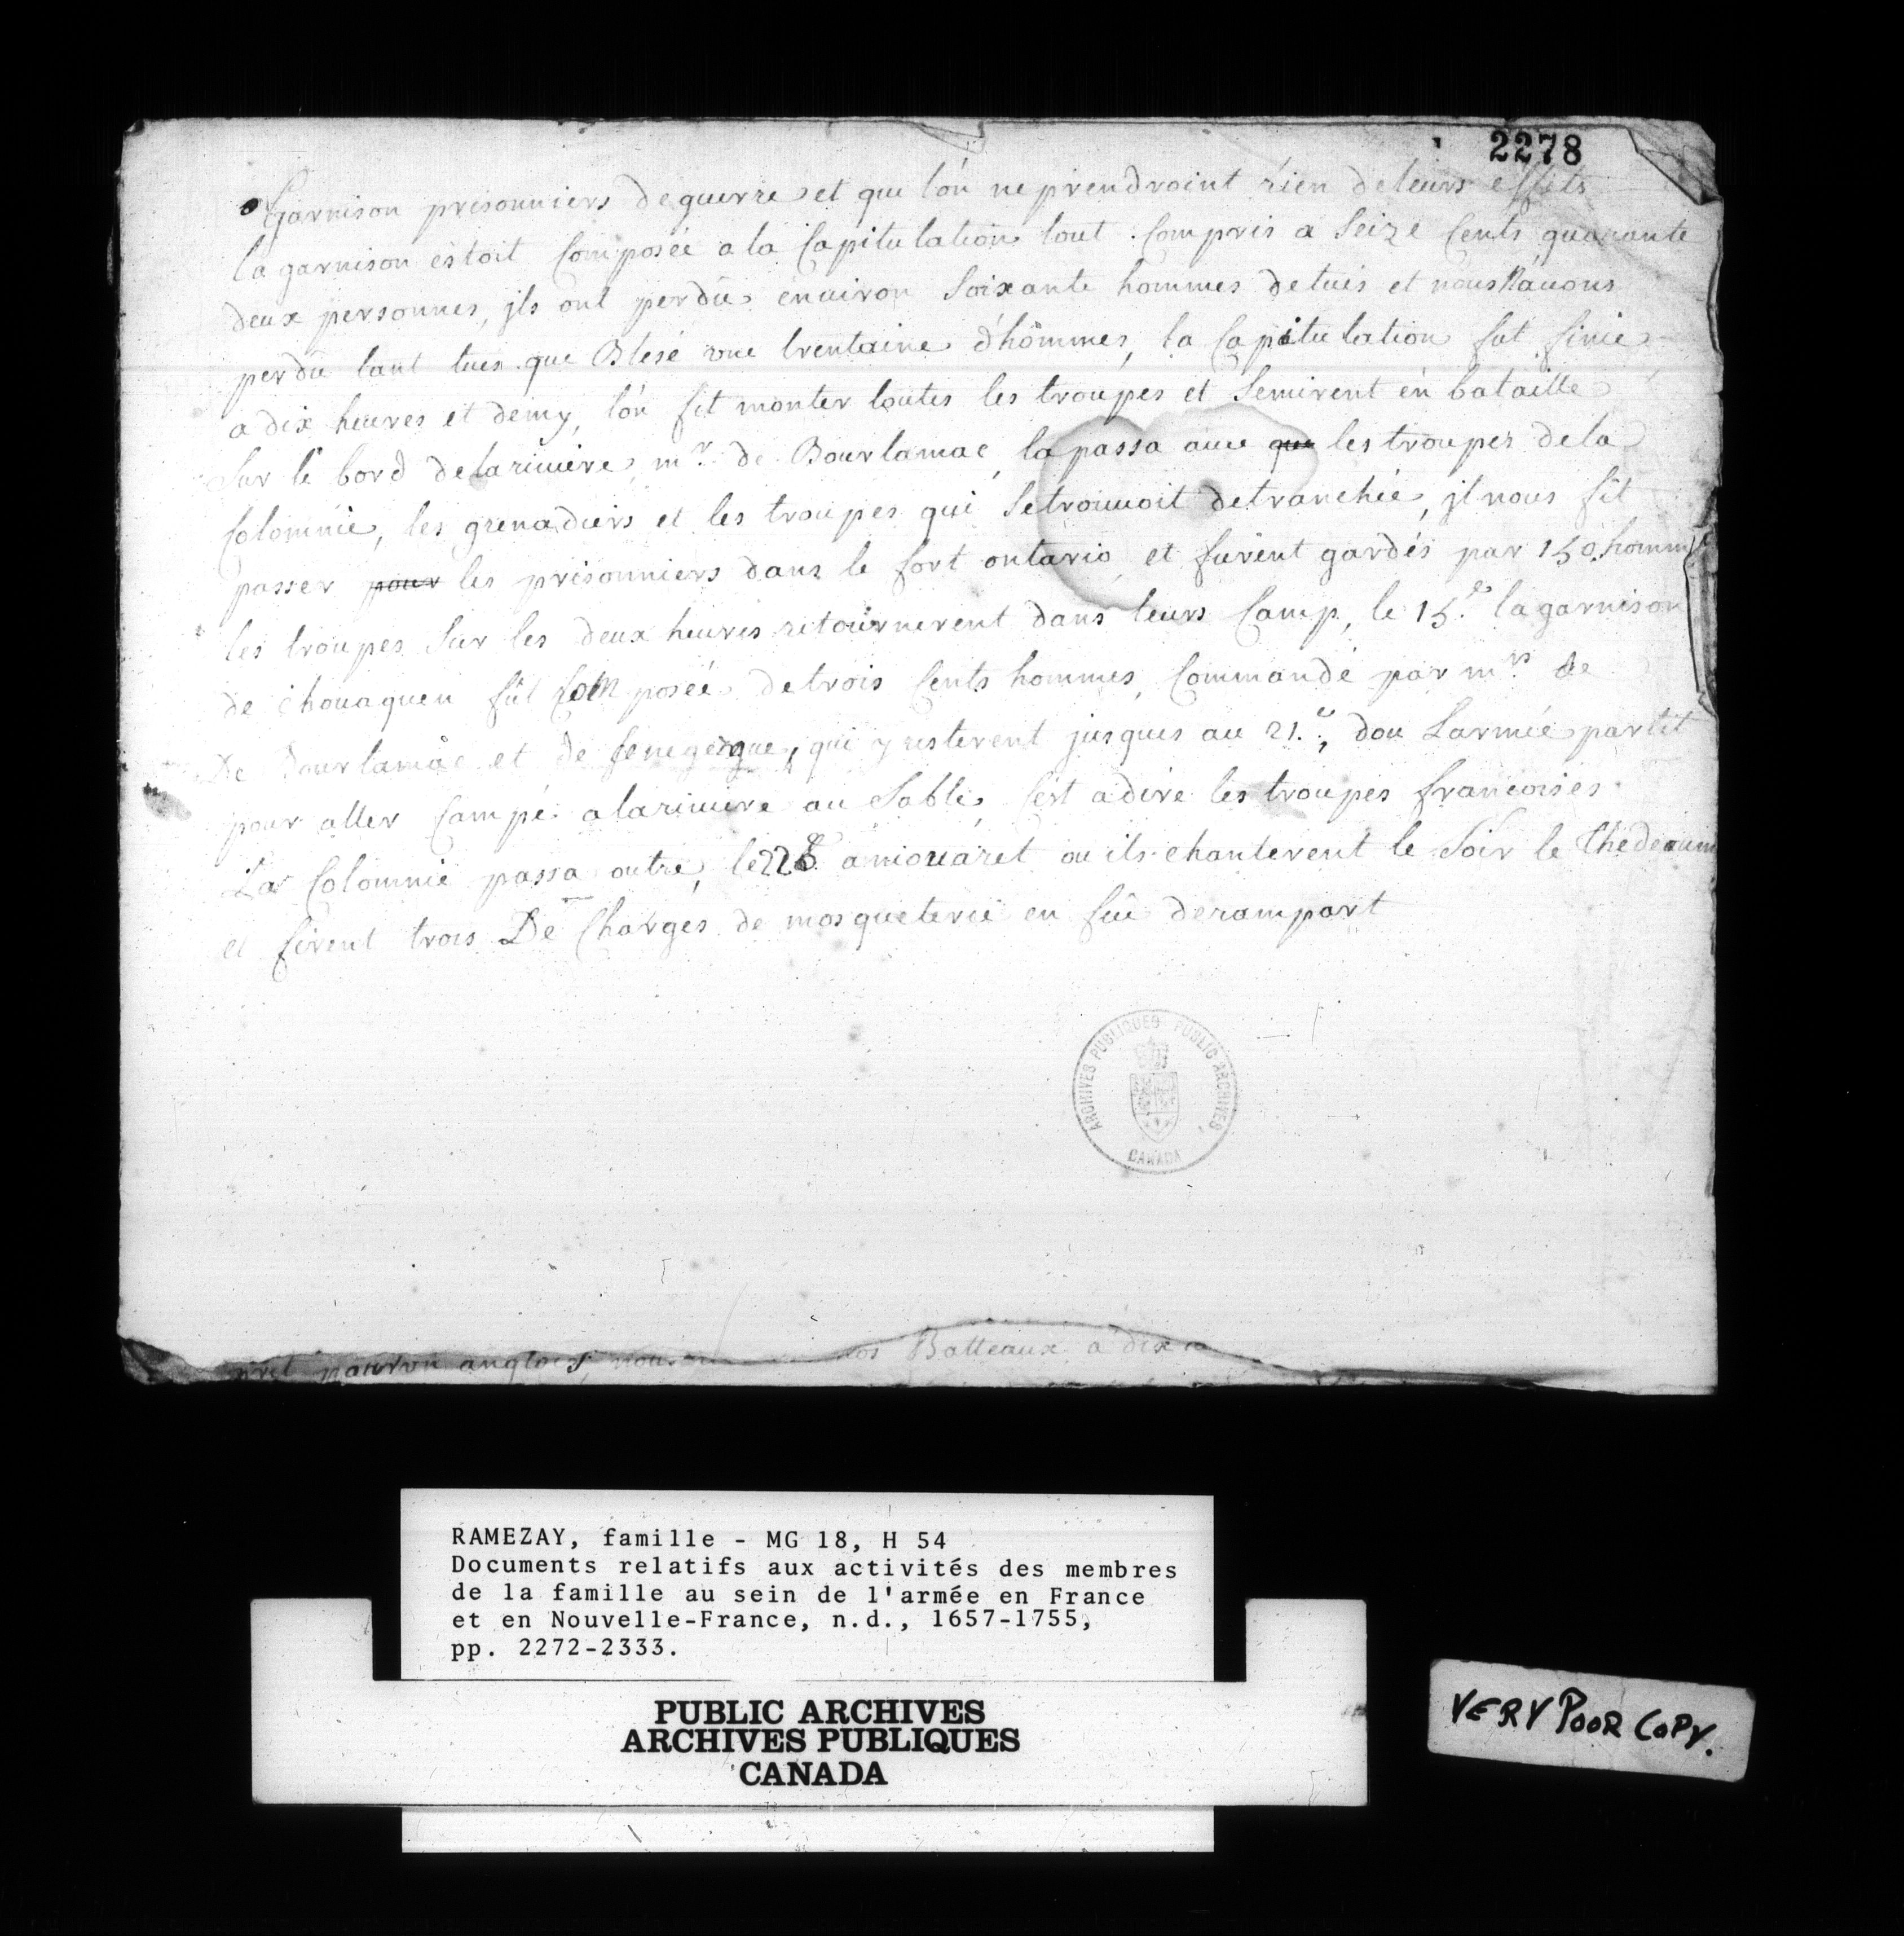 2278
Garnison prisonniers de guerre et que lón ne prendroint rien de leurs effets
la garnison estoit Composée a la Capitulation tout Compris a Seize Cents quarante
deux personnes, jls ont perdû enuiron Soixante hommes de tués et nous Náuons
perdû tant tues que Blesé une trentaine d'hommes, la Capitulation fut finie
a dix heures et demy, lón fit monter toutes les troupes et Semirent en bataille
Sur le bord de la riuiere, mr. de Bourlamac, la passa auec que les troupes de la
Colomnie, les grenadiers et les troupes qui Setrouuoit detranchée, jl nous fit
passer pour les prisonniers dans le fort ontario, et furent gardés par 150 hommes
les troupes Sur les deux heures retournerent dans leurs Camp, le 15.e la garnison
de chouaguen fut Composée de trois Cents hommes, Commandé par mrs. de
De Bourlamac et de, qui y resterent jusques au 21.e, dou Larmée partit
pour aller Campé a la riuiere au Sable, Cest a dire les troupes francoises
La Colomnie passa outre, le 22e a niouáret ou ils chanterent le Soir le Thedeaum
et firent trois De Charges de mosqueterie en feü de rampart
ARCHIVES PUBLIQUES PUBLIC ARCHIVES
CANADA
anglois, Batteaux a dix
RAMEZAY, famille - MG 18, H 54
Documents relatifs aux activités des membres
de la famille au sein de l'armée en France
et en Nouvelle-France, n.d., 1657-1755,
pp. 2272-2333.
PUBLIC ARCHIVES
ARCHIVES PUBLIQUES
CANADA
VERY POOR COPY.